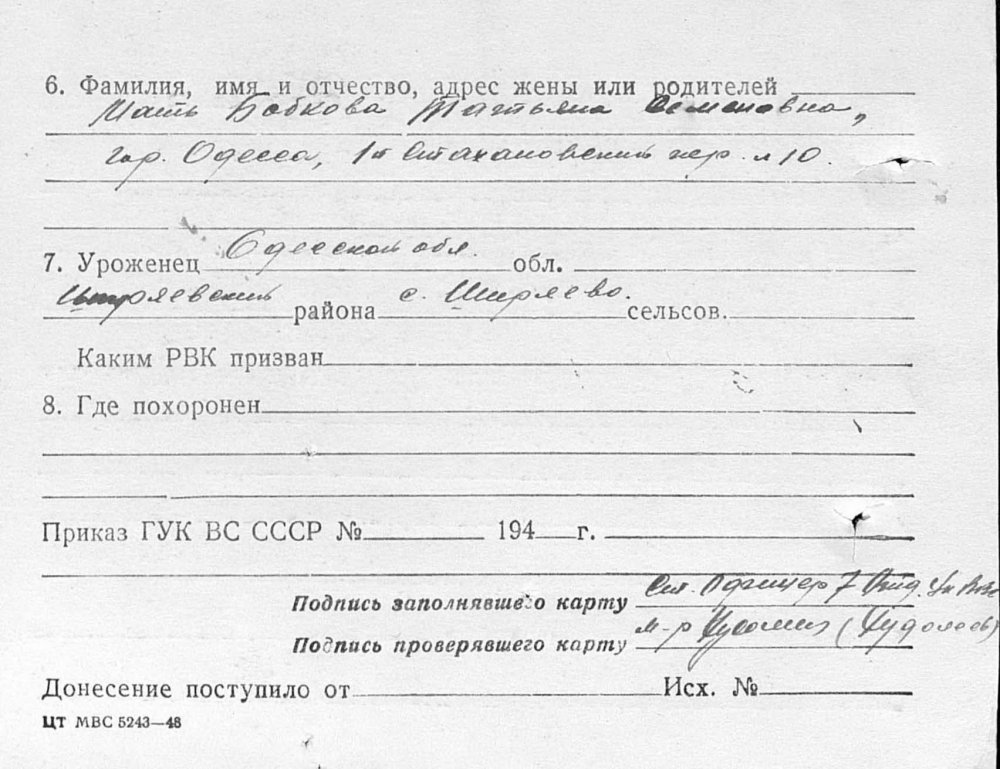 6. Фамилия, имя и отчество, адрес жены или родителей
Мать Бобкова Татьяна Семеновна,
гор. Одесса, 1й Стахановский пер. № 10.
7. Уроженец Одесской обл. обл.
Ширяевский района с. Ширяево. сельсов.
Каким РВК призван
8. Где похоронен
Приказ ГУК ВС СССР № 194 г.
Подпись заполнявшего карту Ст. Офицер 7 Отд.
Подпись проверявшего карту м-р
Донесение поступило от Исх. №
ЦТ МВС 5243—48